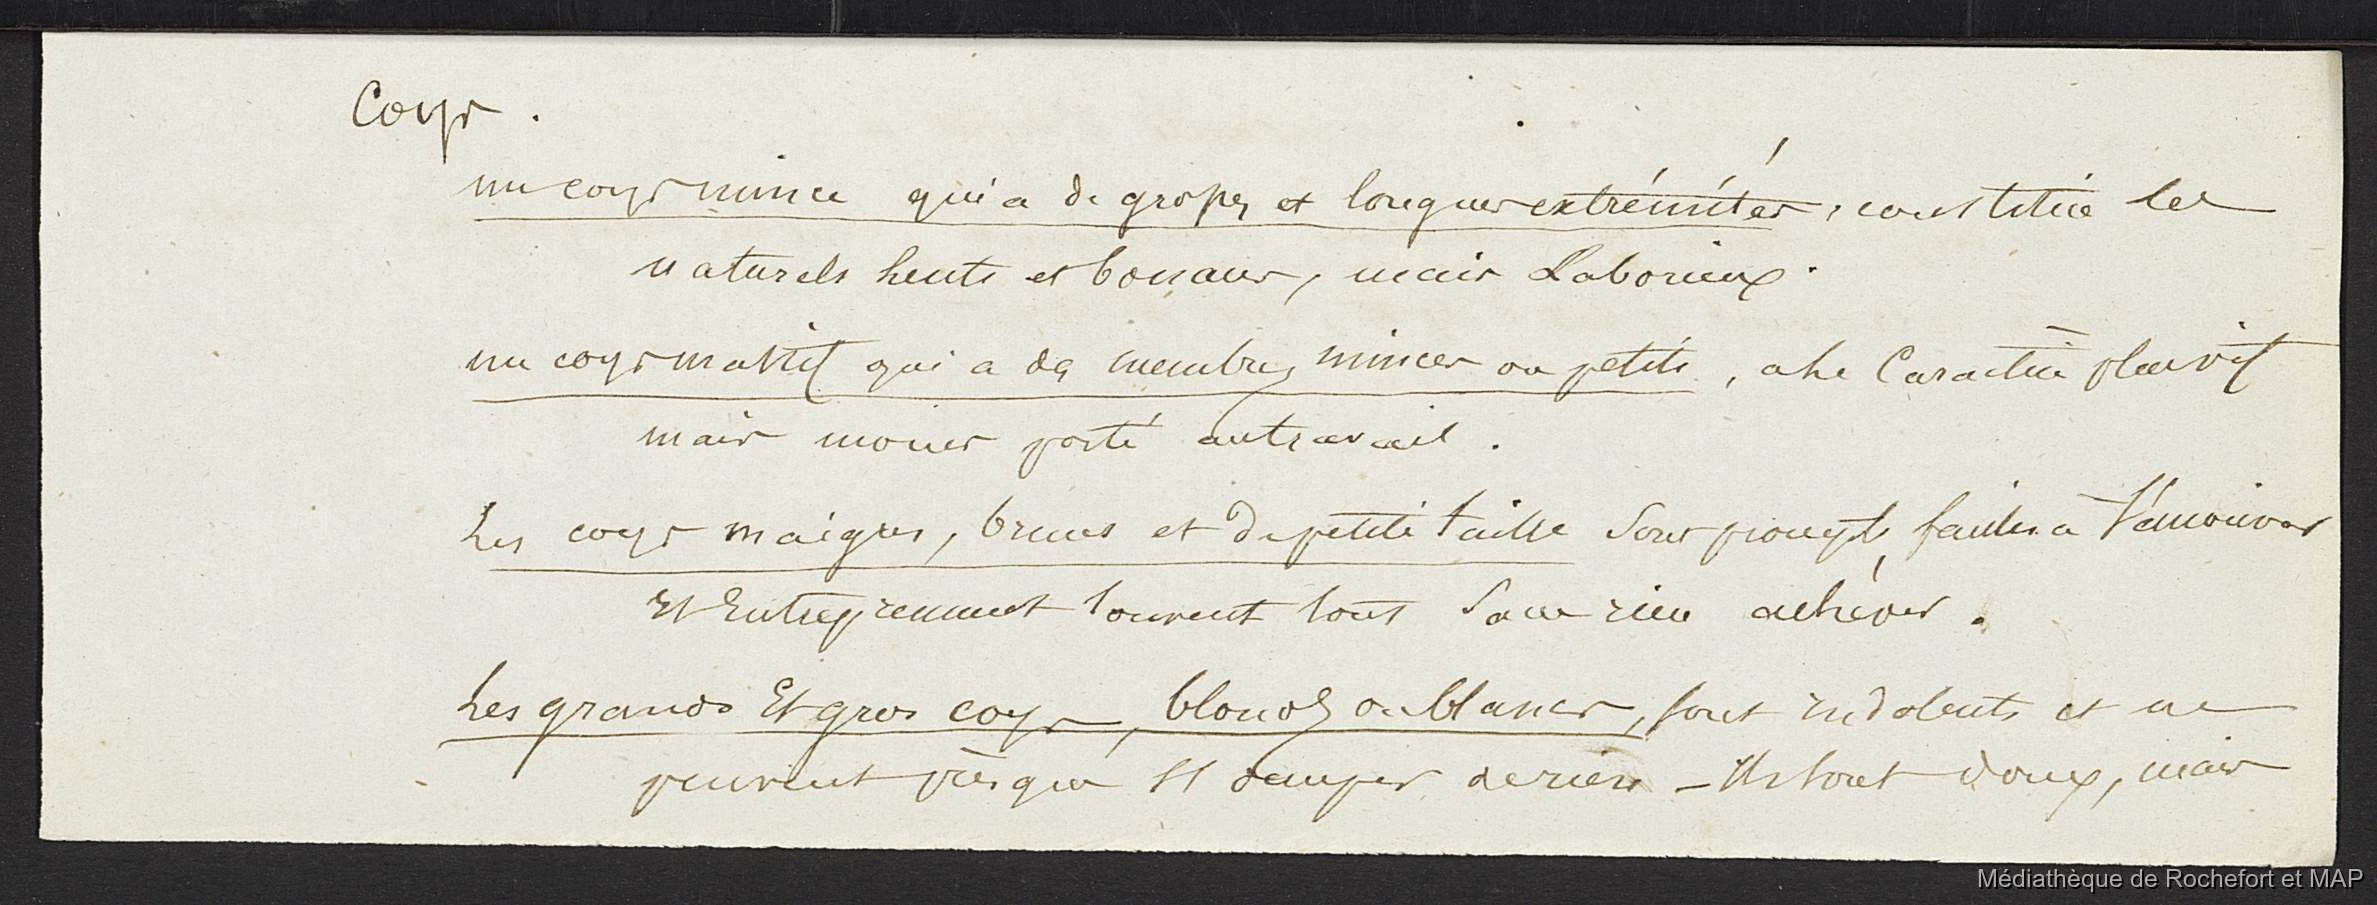 Corps.
un corps mince qui a de grosses et longues extrémités, constitue les
naturels lents et bonaces, mais Laborieux.
un corps massif qui a des membres minces ou petits, a le Caractère plus vif
mais moins porté au travail.
Les corps maigres, bruns et de petite taille sont prompts, faciles a s'émouvoir
Et Entreprennent souvent tout sans rien achever.
Les grands Et gros corps, blonds ou blancs, sont indolents et ne
peuvent presque s'occuper de rien - Ils sont doux, mais
Médiathèque de Rochefort et MAP